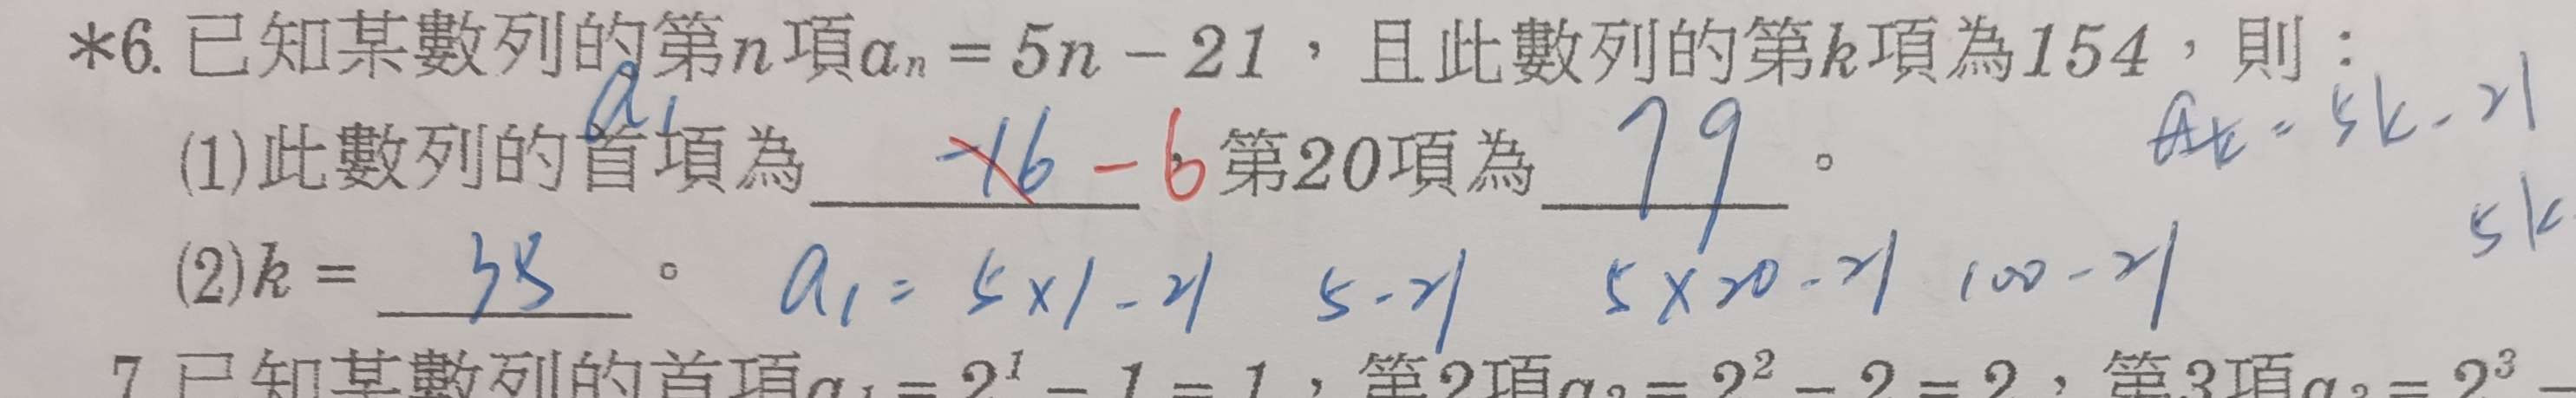 *6. 已知某數列的第n項aₙ = 5n − 21，且此數列的第k項為154，則：
a₁
aₖ = 5k - 21
(1)此數列的首項為 -16 -6 第20項為 79 。
5k
(2)k = 35 。 a₁ = 5×1-21 5-21 5×20-21 100-21
7. 已知某數列的首項a₁ = 2¹ − 1 = 1，第2項a₂ = 2² − 2 = 2，第3項a₃ = 2³ −